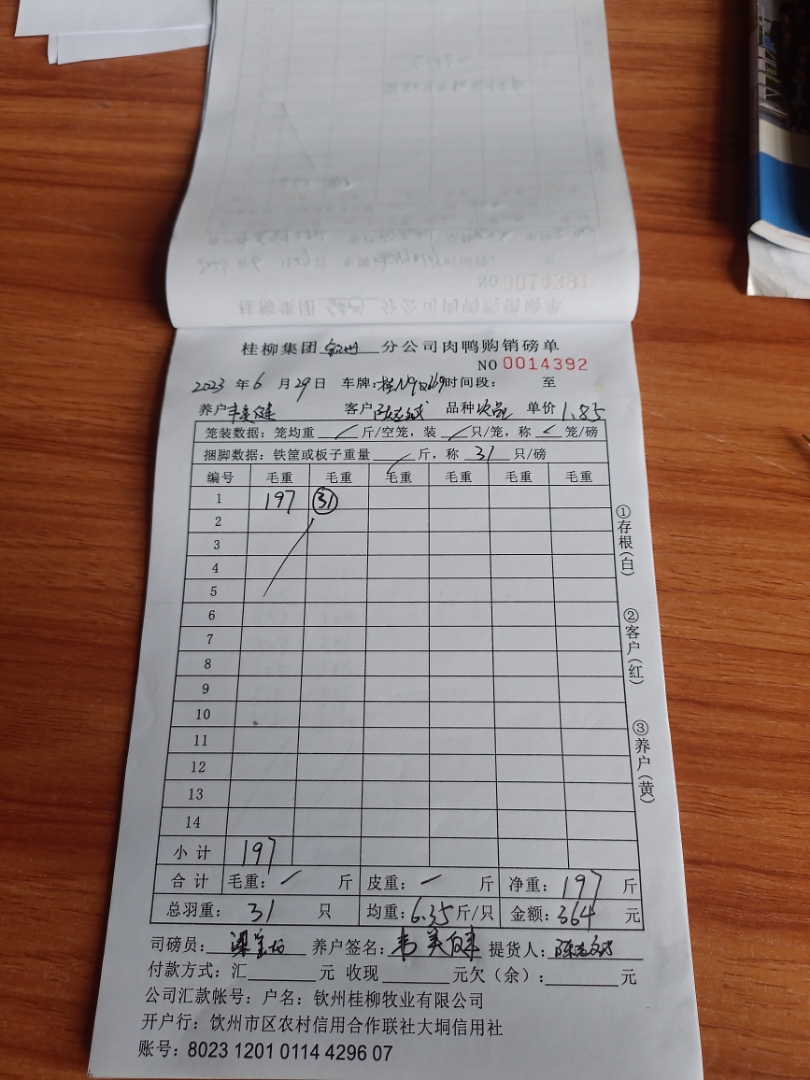 桂柳集团 钦州 分公司肉鸭购销磅单
NO 0014392
2023 年 6 月 29 日 车牌: 时间段: 至
养户 韦美健 客户 品种 次品 单价 1.85
笼装数据: 笼均重 / 斤/空笼, 装 / 只/笼, 称 / 笼/磅
捆脚数据: 铁筐或板子重量 / 斤, 称 31 只/磅
编号 毛重 毛重 毛重 毛重 毛重 毛重
1 197 31
2
3
4
5
6
7
8
9
10
11
12
13
14
小计 197
合计 毛重: / 斤 皮重: / 斤 净重: 197 斤
总羽重: 31 只 均重: 6.35 斤/只 金额: 364 元
司磅员: 养户签名: 韦美健 提货人:
付款方式: 汇 元 收现 元欠(余): 元
公司汇款帐号: 户名: 钦州桂柳牧业有限公司
开户行: 饮州市区农村信用合作联社大垌信用社
账号: 8023 1201 0114 4296 07
①存根(白)
②客户(红)
③养户(黄)